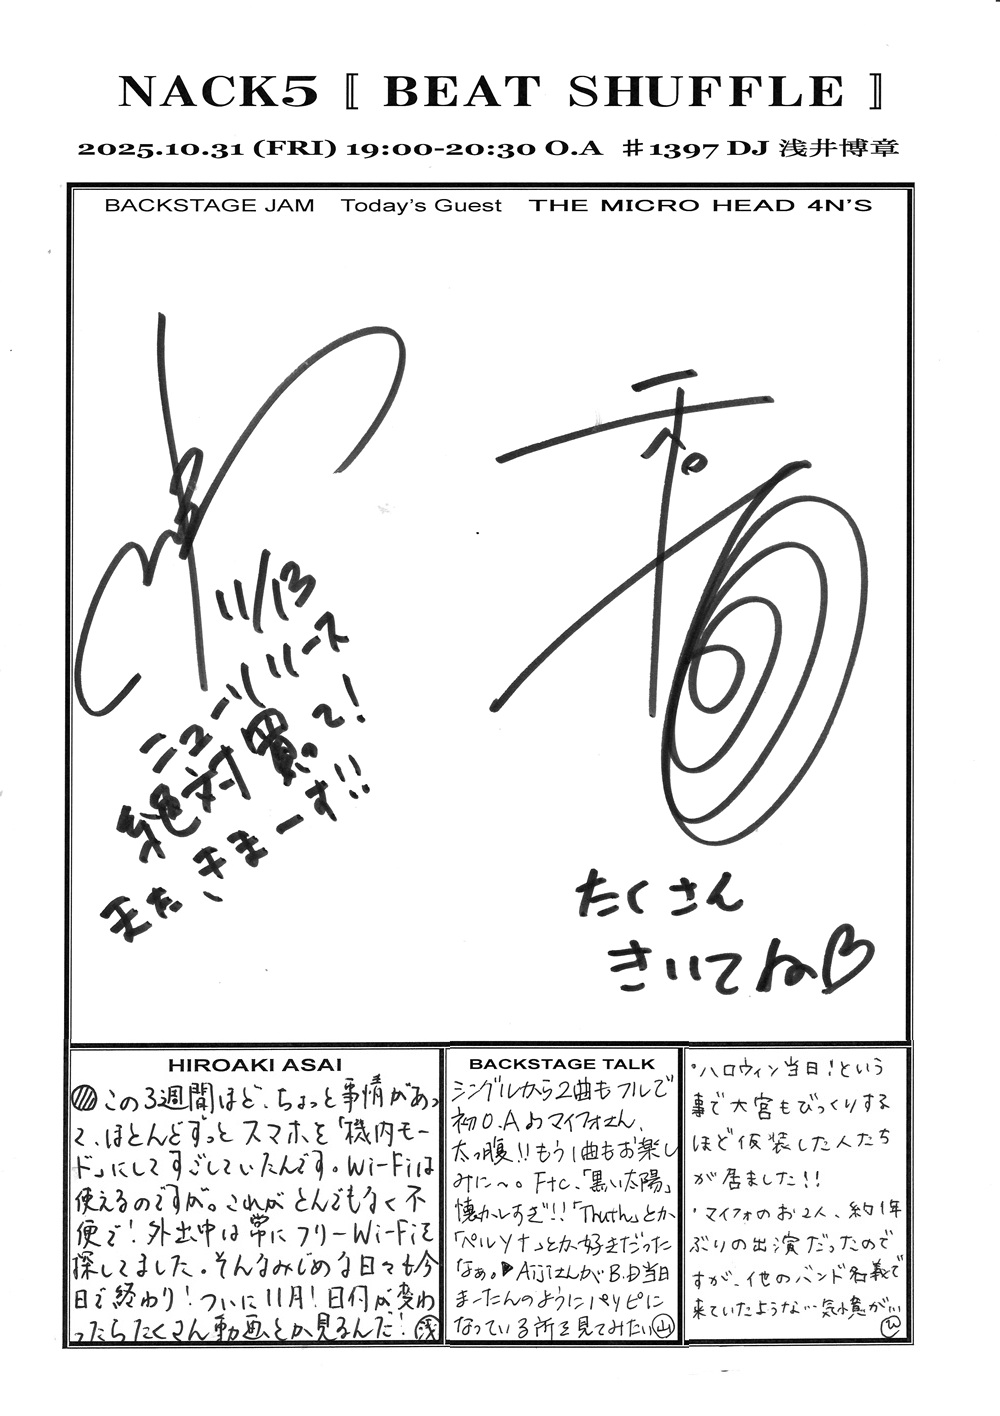 NACK5 〚 BEAT SHUFFLE 〛
2025.10.31 (FRI) 19:00-20:30 O.A ♯1397 DJ 浅井博章
BACKSTAGE JAM Today's Guest THE MICRO HEAD 4N'S
11/13
ニューリリース
絶対買って!
またきまーす!!
たくさん
きいてね♡
HIROAKI ASAI
この3週間ほど、ちょっと事情があっ
て、ほとんどずっとスマホを「機内モー
ド」にしてすごしていたんです。Wi-Fiは
使えるのですが。これがとんでもなく不
便で!外出中は常にフリーWi-Fiを
探してました。そんなみじめな日々も今
日で終わり!ついに11月!日付が変わ
ったらたくさん動画とか見るんだ!(浅)
BACKSTAGE TALK
シングルから2曲もフルで
初O.Aのマイフォさん、
太っ腹!!もう1曲もお楽し
みに〜。Ftc、「黒い太陽」
懐かしすぎ!!「Truth」とか
「ペルソナ」とか好きだった
なぁ。▶AijiさんがB.D当日
まーたんのようにパリピに
なっている所を見てみたい(山)
・ハロウィン当日!という
事で大宮もびっくりする
ほど仮装した人たち
が居ました!!
・マイフォのお2人、約1年
ぶりの出演だったので
すが、他のバンド名義で
来ていたような…気が…(ひ)